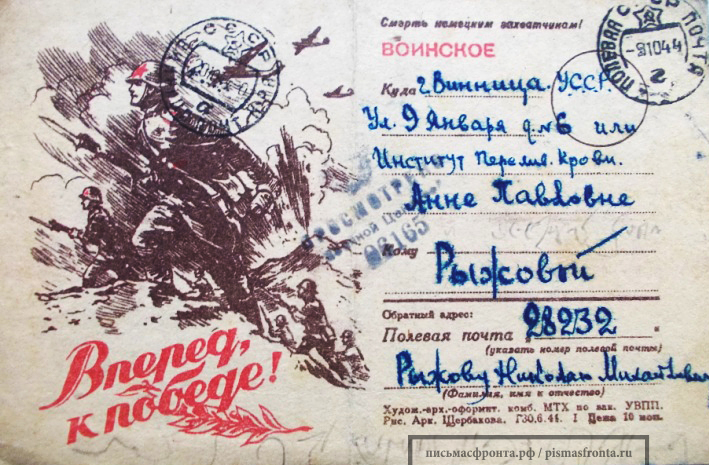 Смерть немецким захватчикам!
ВОИНСКОЕ
ПОЛЕВАЯ ПОЧТА
-9 10 44
2
Куда г. Винница. УССР.
Ул. 9 Января д. № 6 или
Институт Перелив. Крови.
ПРОСМОТРЕНО
Военной Цензурой
02165
Анне Павловне
Кому
Рыжовой
Обратный адрес:
Полевая почта „28232"
(указать номер полевой почты)
Рыжову Николаю Михайлович
(Фамилия, имя и отчество)
Худож.-врх.-оформит. комб. МТХ по вак. УВПП.
Рис. Арк. Щербакова. Г30,6.44. I Цена 10 коп.
Вперед,
к победе!
письмасфронта.рф / pismasfronta.ru